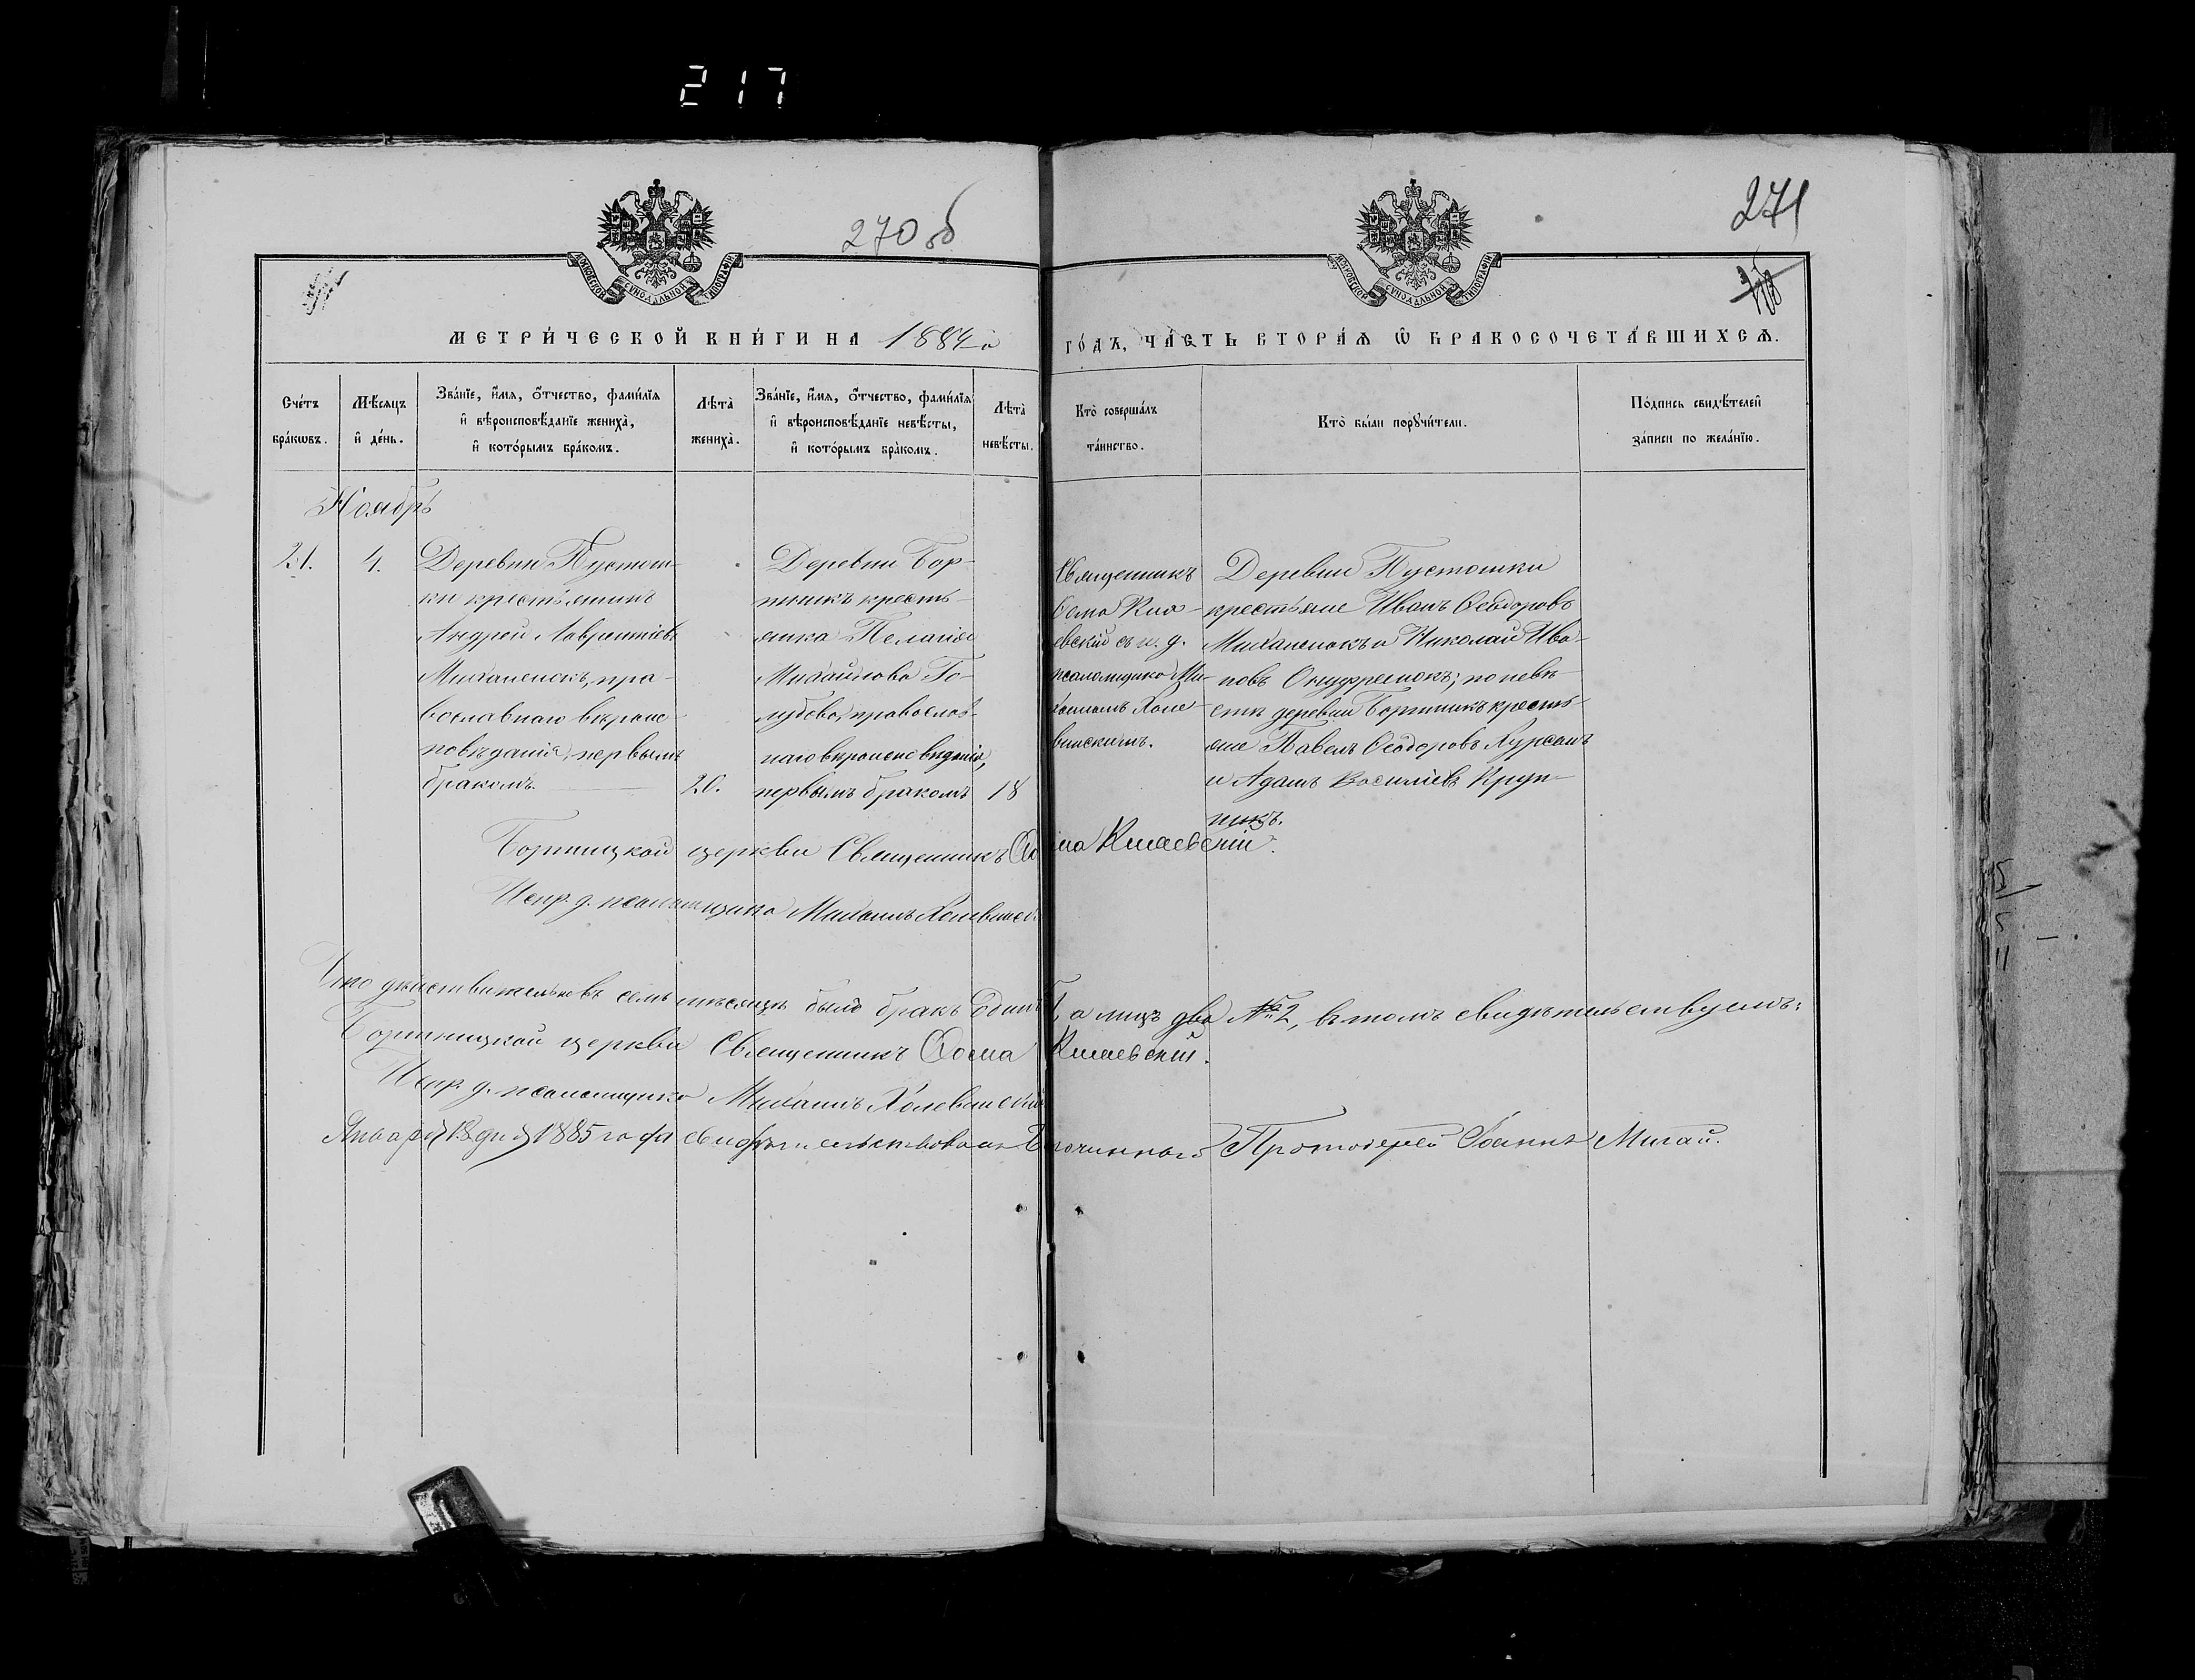 217
270 об
271
МОСКОВСКОЙ СѴНОДАЛЬНОЙ ТИПОГРАФІИ
МОСКОВСКОЙ СѴНОДАЛЬНОЙ ТИПОГРАФІИ
МЕТРИ́ЧЕСКОЙ КНИ́ГИ НА 1884 го ГО́ДЪ, ЧА́СТЬ ВТОРА́Я Ѡ҆ БРАКОСОЧЕТА́ВШИХСЯ.
Сче́тъ
бра́кѡвъ.
Мѣ́сяцъ
и҆ де́нь.
Зва́нїе, и҆́мя, ѻ҆́тчество, фами́лїя
и҆ вѣроисповѣ́данїе жениха̀,
и҆ кото́рымъ бра́комъ.
Лѣта̀
жениха̀.
Зва́нїе, и҆́мя, ѻ҆́тчество, фами́лїя
и҆ вѣроисповѣ́данїе невѣ́сты,
и҆ кото́рымъ бра́комъ.
Лѣта̀
невѣ́сты.
Кто̀ соверша́лъ
та́инство.
Кто̀ бы́ли порꙋчи́тели.
По́дпись свидѣ́телей
за́писи по жела́нїю.
Ноябрь
21.
4.
Деревни Пустош-
ки крестьянинъ
Андрей Лаврентіевъ
Миханенокъ, пра-
вославнаго вѣроис-
повѣданія, первымъ
бракомъ.
20.
Деревни Бор-
тникъ кресть-
янка Пелагія
Михайлова Го-
лубова, православ-
наго вѣроисповѣданія,
первымъ бракомъ
18
Священникъ
Ѳома Кна-
евскій съ и. д.
псаломщика Ми-
хаиломъ Холе-
винскимъ.
Деревни Пустошки
крестьяне Иванъ Ѳеодоровъ
Миханенокъ и Николай Ива-
новъ Онуфренокъ; по невѣ-
стѣ деревни Бортникъ кресть-
яне Павелъ Ѳеодоровъ Хурсанъ
и Адамъ Василіевъ Круп-
никъ.
Бортницкой церкви Священникъ Ѳома Кнаевскій.
Испр. д. псаломщика Михаилъ Холевинскій
Что дѣйствительно въ семъ мѣсяцѣ было бракъ Одинъ 1, а лицъ два № 2, въ томъ свидѣтельствуемъ:
Бортницкой церкви Священникъ Ѳома Кнаевскій.
Испр. д. псаломщика Михаилъ Холевинскій
Января 18 дня 1885 года свидѣтельствовалъ Благочинный Протоіерей Іоаннъ Мигай.